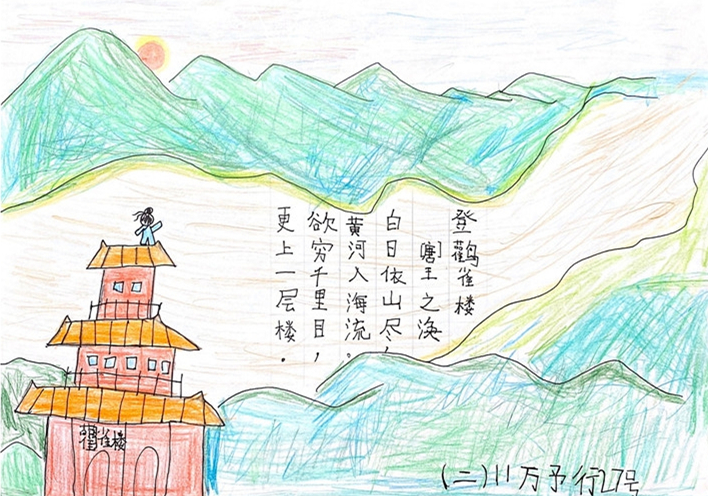 登鹳雀楼
[唐]王之涣
白日依山尽，
黄河入海流。
欲穷千里目，
更上一层楼。
鹳雀楼
(二)11 万予行27号